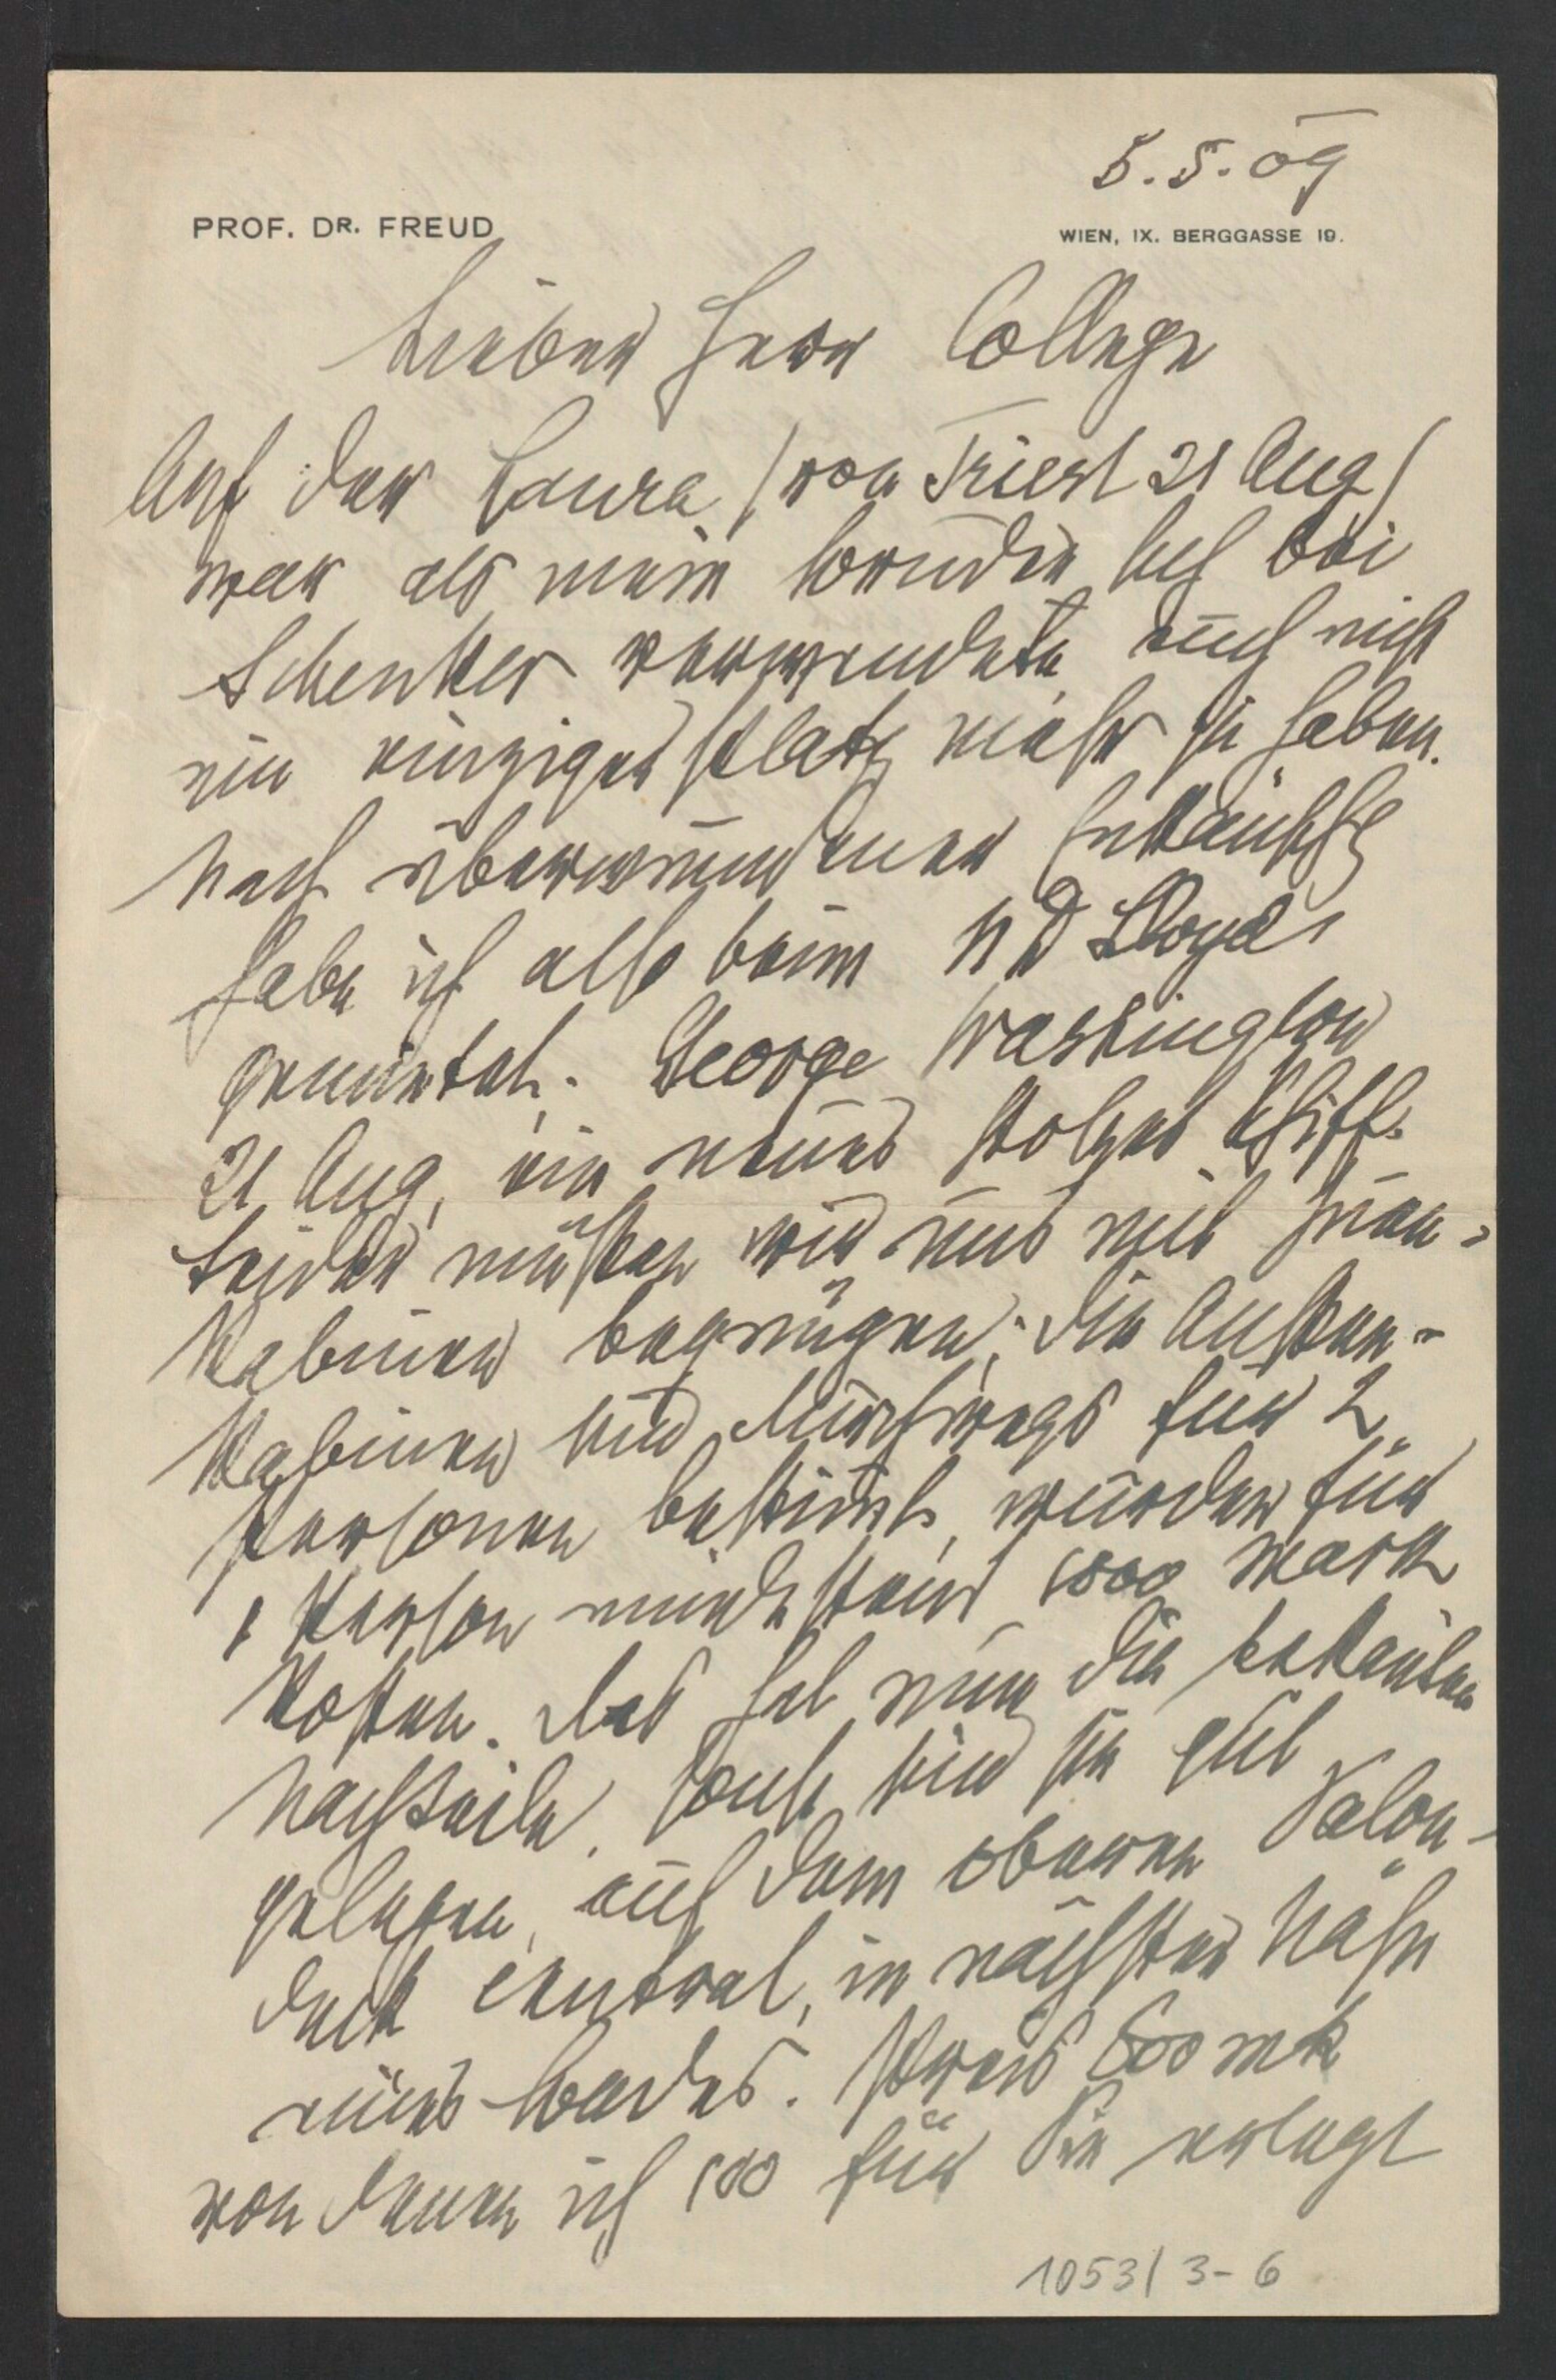 5.5.09
PROF. DR. FREUD
WIEN, IX. BERGGASSE 19.
Lieber Herr College
Auf der Laura (von Triest 21 Aug)
war als mein Bruder sich bei
Schenker verwendete, auch nicht
ein einziger Platz mehr zu haben.
Nach überwundener Enttäuschg
habe ich also beim N D Lloyd
gemietet. George Washington
21 Aug, ein neues stolzes Schiff.
Leider müßten wir uns mit Innen-
kabinen begnügen; die Außen-
kabinen sind durchwegs für 2
Personen bestimt, würden für
1 Person mindestens 1000 Mark
kosten. Das hat nun die bekanten
Nachteile. Sonst sind sie gut
gelegen, auf dem oberen Salon-
deck central, in nächster Nähe
eines Bades. Preis 600 mk
von denen ich 100 für Sie erlegt
1053/3-6